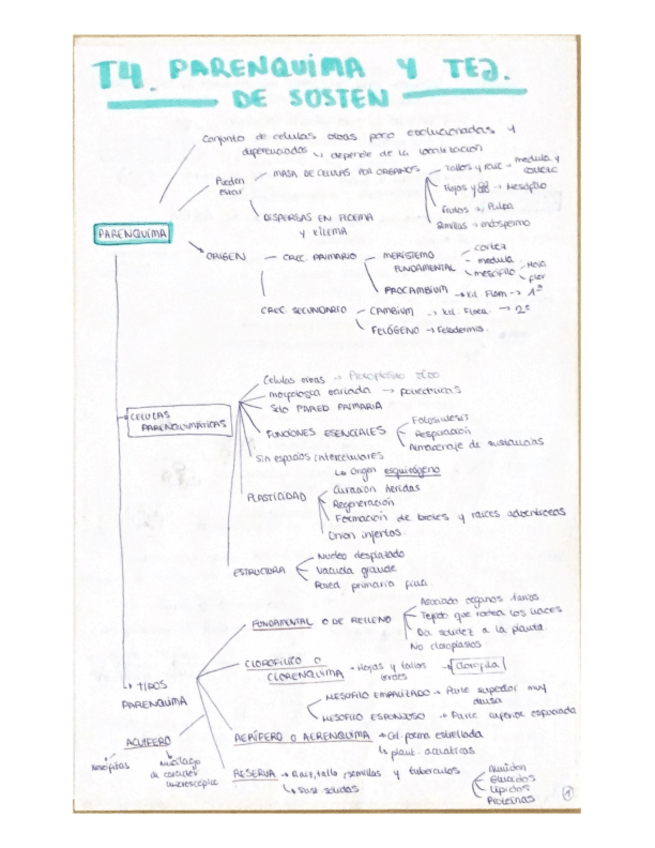 T4. PARENQUIMA Y TEJ.
DE SOSTEN
Conjunto de celulas vivas poco evolucionadas y
diferenciadas ↳ depende de la localización
Pueden
estar
MASA DE CELULAS POR ORGANOS
Tallos y raíz → medula y
corteza
Hojas y → Mesófilo
Frutos → Pulpa
Semillas →
DISPERSAS EN FLOEMA
Y XILEMA
PARENQUIMA
ORIGEN — CREC. PRIMARIO — MERISTEMO
FUNDAMENTAL
cortex
medula
mesofilo
Hoja
flor
PROCAMBIUM → xil. Floem → 1º
CREC. SECUNDARIO — CAMBIUM → xil. Floem. → 2º
FELÓGENO → Felodermis.
CELULAS
PARENQUIMATICAS
Celulas vivas → Protoplasto vivo
Morfologia variada → poliedricas
Solo PARED PRIMARIA
FUNCIONES ESENCIALES
Fotosintesis
Respiración
Almacenaje de sustancias
Sin espacios intercelulares
↳ Origen esquizógeno
PLASTICIDAD
Curación heridas
Regeneración
Formación de brotes y raices adventiceas
Union injertos.
ESTRUCTURA
Nucleo desplazado
Vacuola grande
Pared primaria fina.
TIPOS
PARENQUIMA
FUNDAMENTAL O DE RELLENO
Asociado organos varios
Tejido que rodea los haces
Da solidez a la planta.
No cloroplastos
CLOROFILICO O
CLORENQUIMA → Hojas y tallos
verdes
→ Clorofila
MESOFILO EMPALIZADO → Parte superior muy
densa
MESOFILO ESPONJOSO → Parte inferior espaciada
AERÍFERO O AERENQUIMA → Cel. forma estrellada
↳ plant. acuaticas
ACUIFERO
Xerofitas
Mucilago
de caracter
higroscópico
RESERVA → Raiz, tallo, semillas y tuberculos
↳ Sust. solidas
Almidon
Glucidos
Lipidos
Proteinas
1